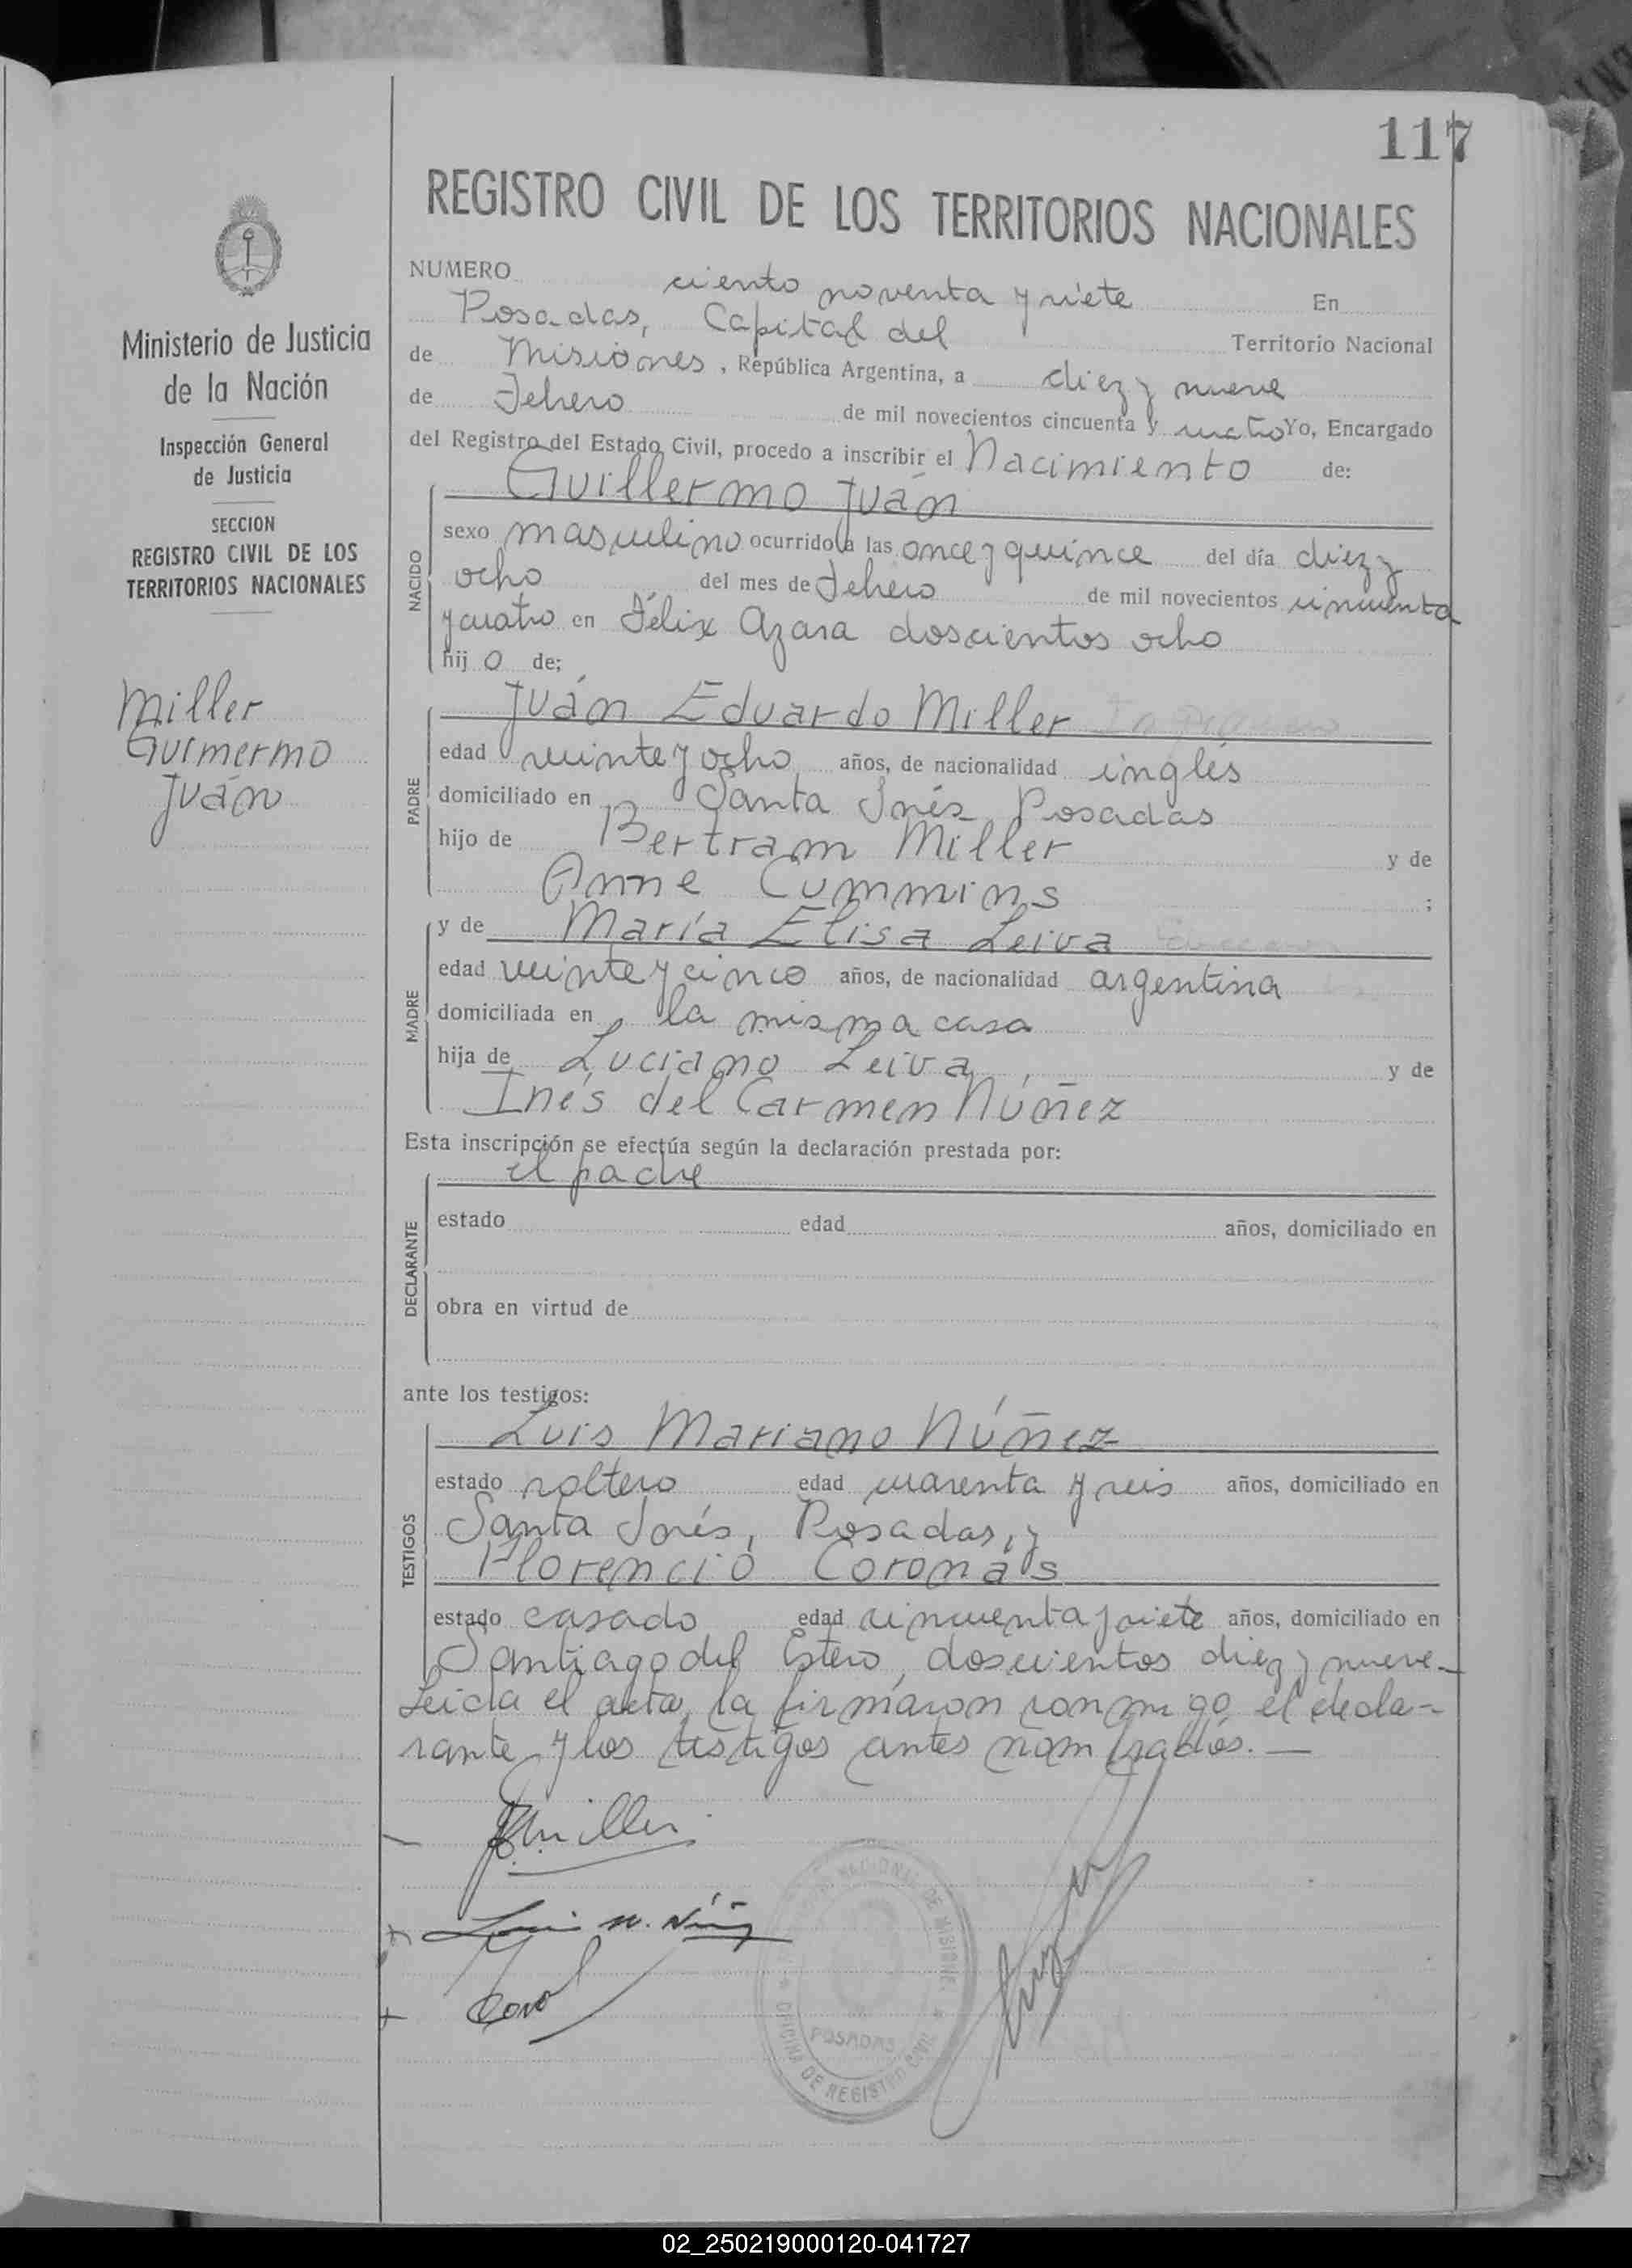 117
REGISTRO CIVIL DE LOS TERRITORIOS NACIONALES
Ministerio de Justicia
de la Nación
Inspección General
de Justicia
SECCION
REGISTRO CIVIL DE LOS
TERRITORIOS NACIONALES
Miller
Guimermo
Juán
NUMERO ciento noventa y siete En
Posadas, Capital del Territorio Nacional
de Misiones, República Argentina, a diez y nueve
de Febrero de mil novecientos cincuenta y cuatro Yo, Encargado
del Registro del Estado Civil, procedo a inscribir el Nacimiento de:
NACIDO
Guillermo Juán
sexo masculino ocurrido a las once y quince del día diez y
ocho del mes de Febrero de mil novecientos cincuenta
y cuatro en Félix Azara doscientos ocho
hijo de:
PADRE
Juán Eduardo Miller
edad veinte y ocho años, de nacionalidad inglés
domiciliado en Santa Inés Posadas
hijo de Bertram Miller y de
Anne Cummins ;
MADRE
y de María Elisa Leiva
edad veinte y cinco años, de nacionalidad argentina
domiciliada en la misma casa
hija de Luciano Leiva, y de
Inés del Carmen Núñez
Esta inscripción se efectúa según la declaración prestada por:
DECLARANTE
el padre
estado edad años, domiciliado en
obra en virtud de
ante los testigos:
TESTIGOS
Luis Mariano Núñez
estado soltero edad cuarenta y seis años, domiciliado en
Santa Inés, Posadas, y
Florencio Coronás
estado casado edad cincuenta y siete años, domiciliado en
Santiago del Estero, doscientos diez y nueve.-
Leida el acta, la firmaron conmigo el decla-
rante y los testigos antes nombrados. —
JEMiller
Luis M. Núñez
NACIONAL DE MISIONES
POSADAS
OFICINA DE REGISTRO CIVIL
02_250219000120-041727